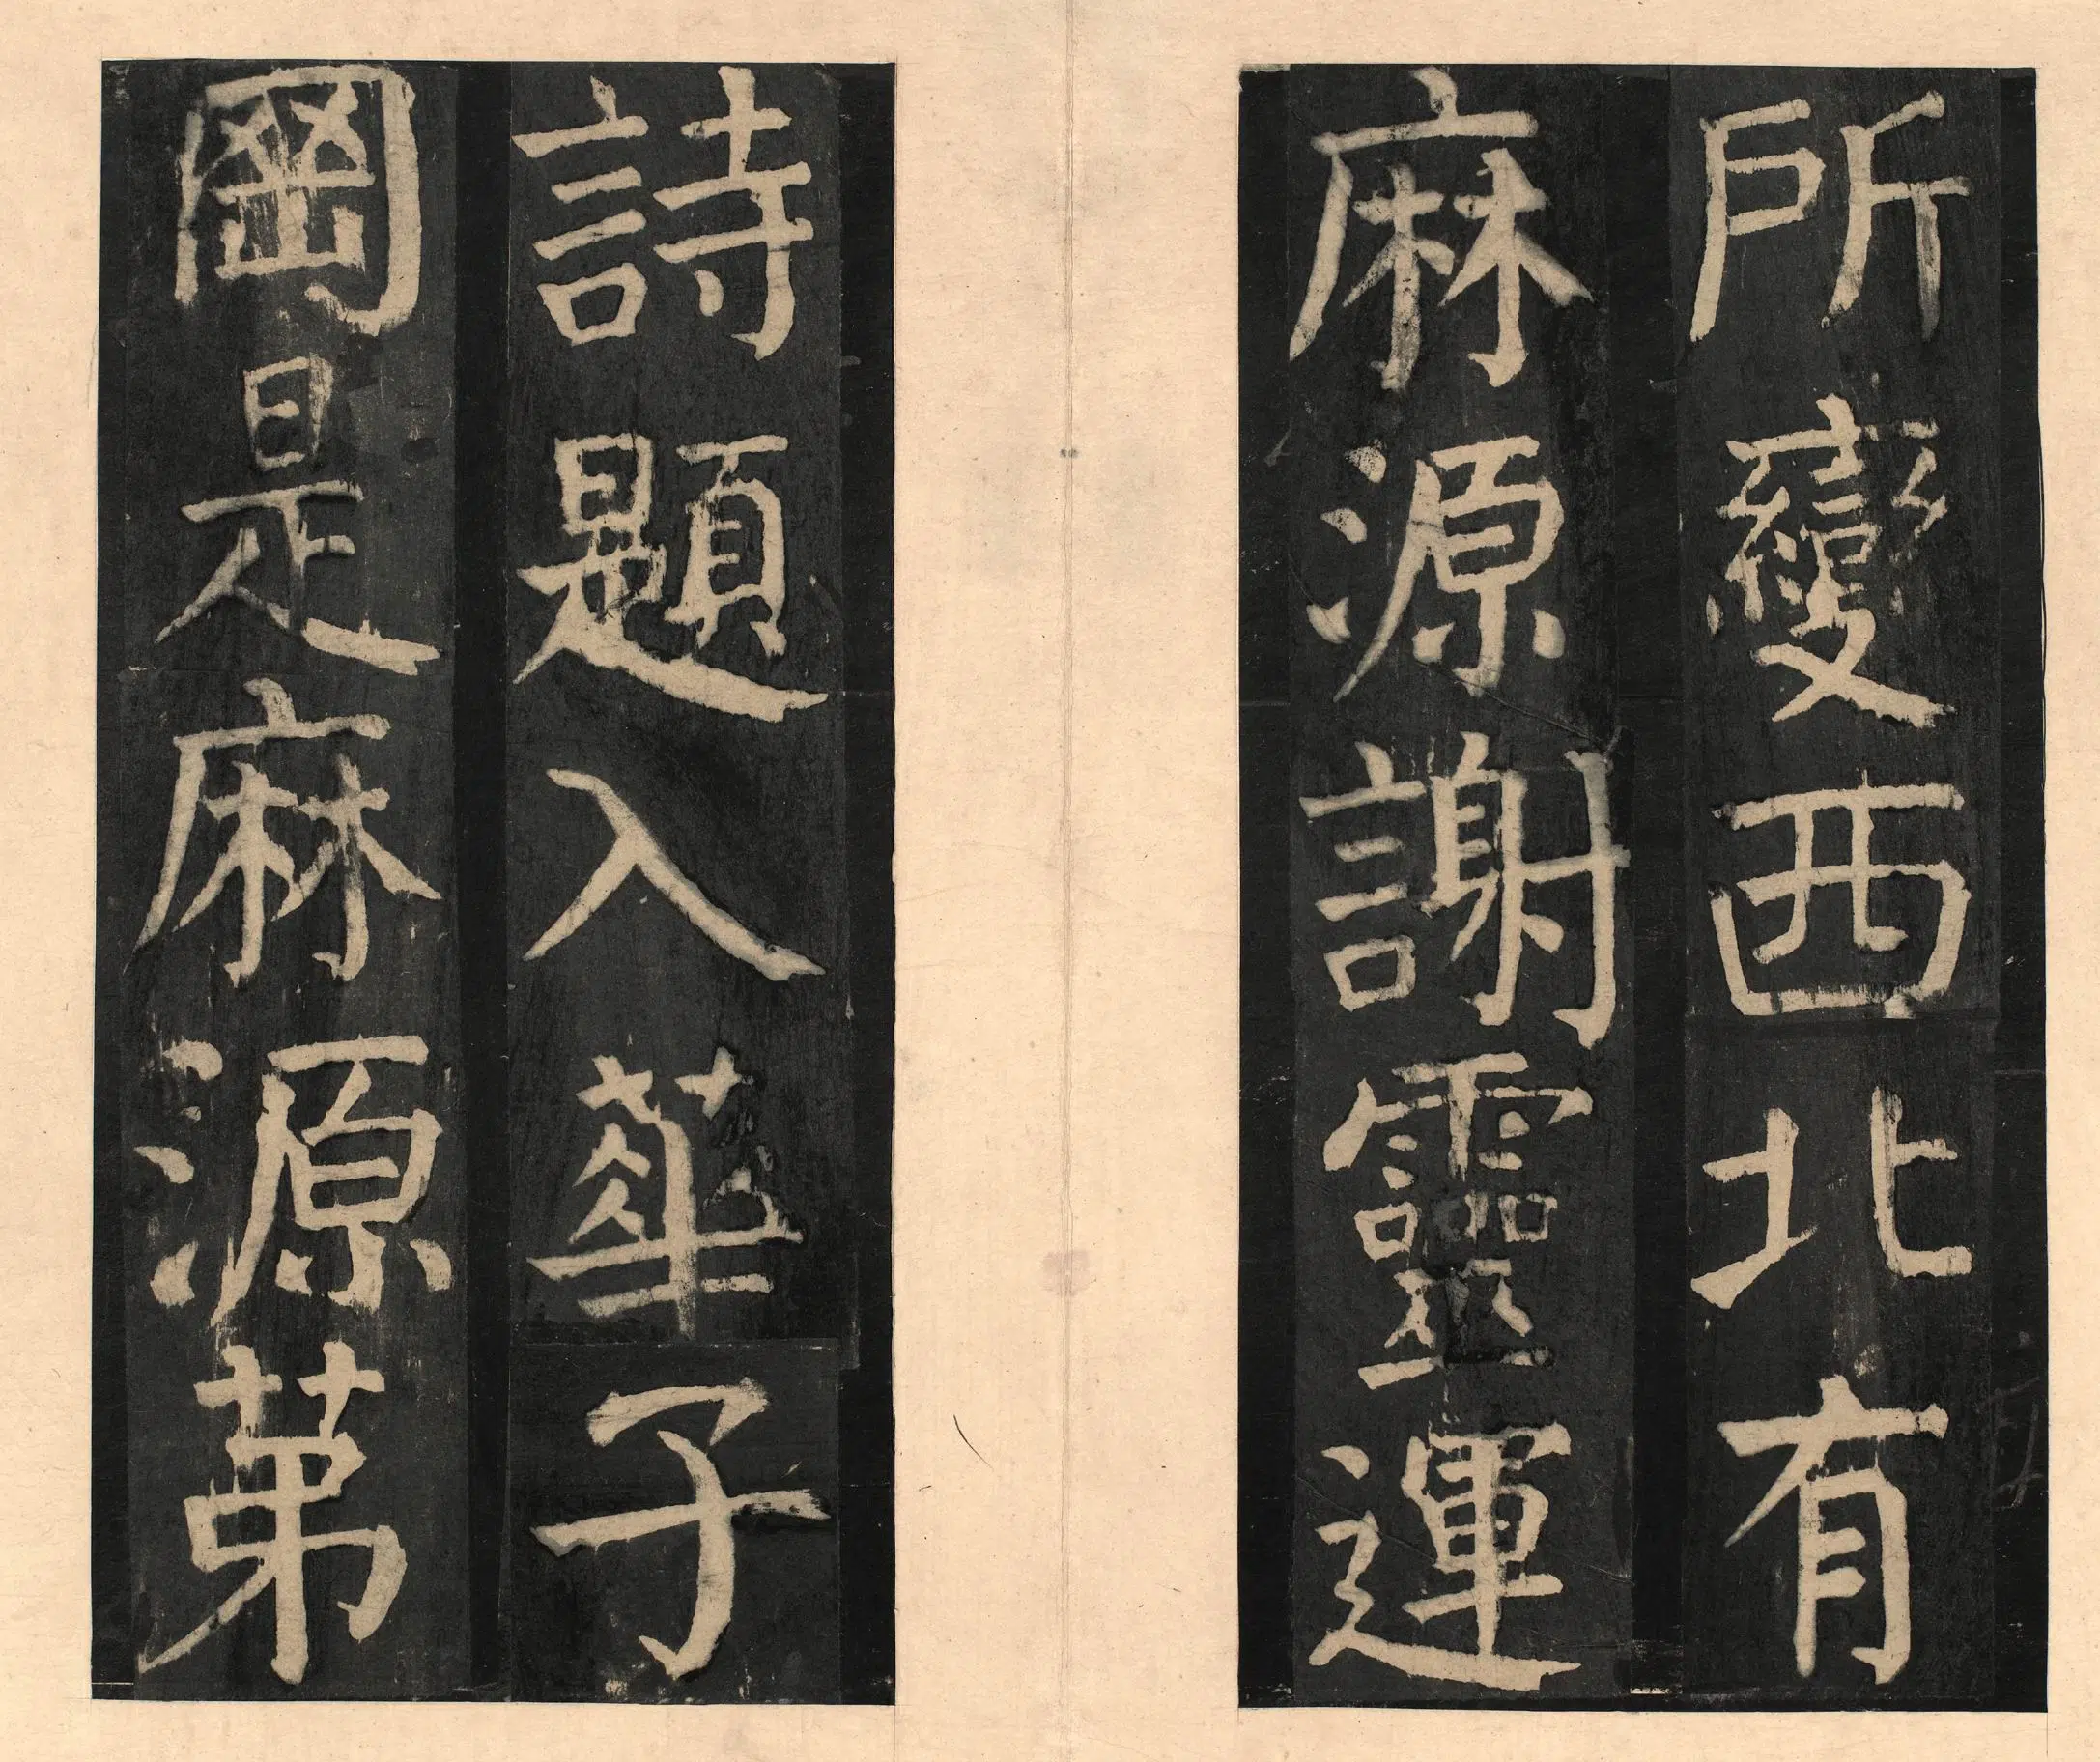 所變西北有
麻源謝靈運
詩題入華子
岡是麻源苐